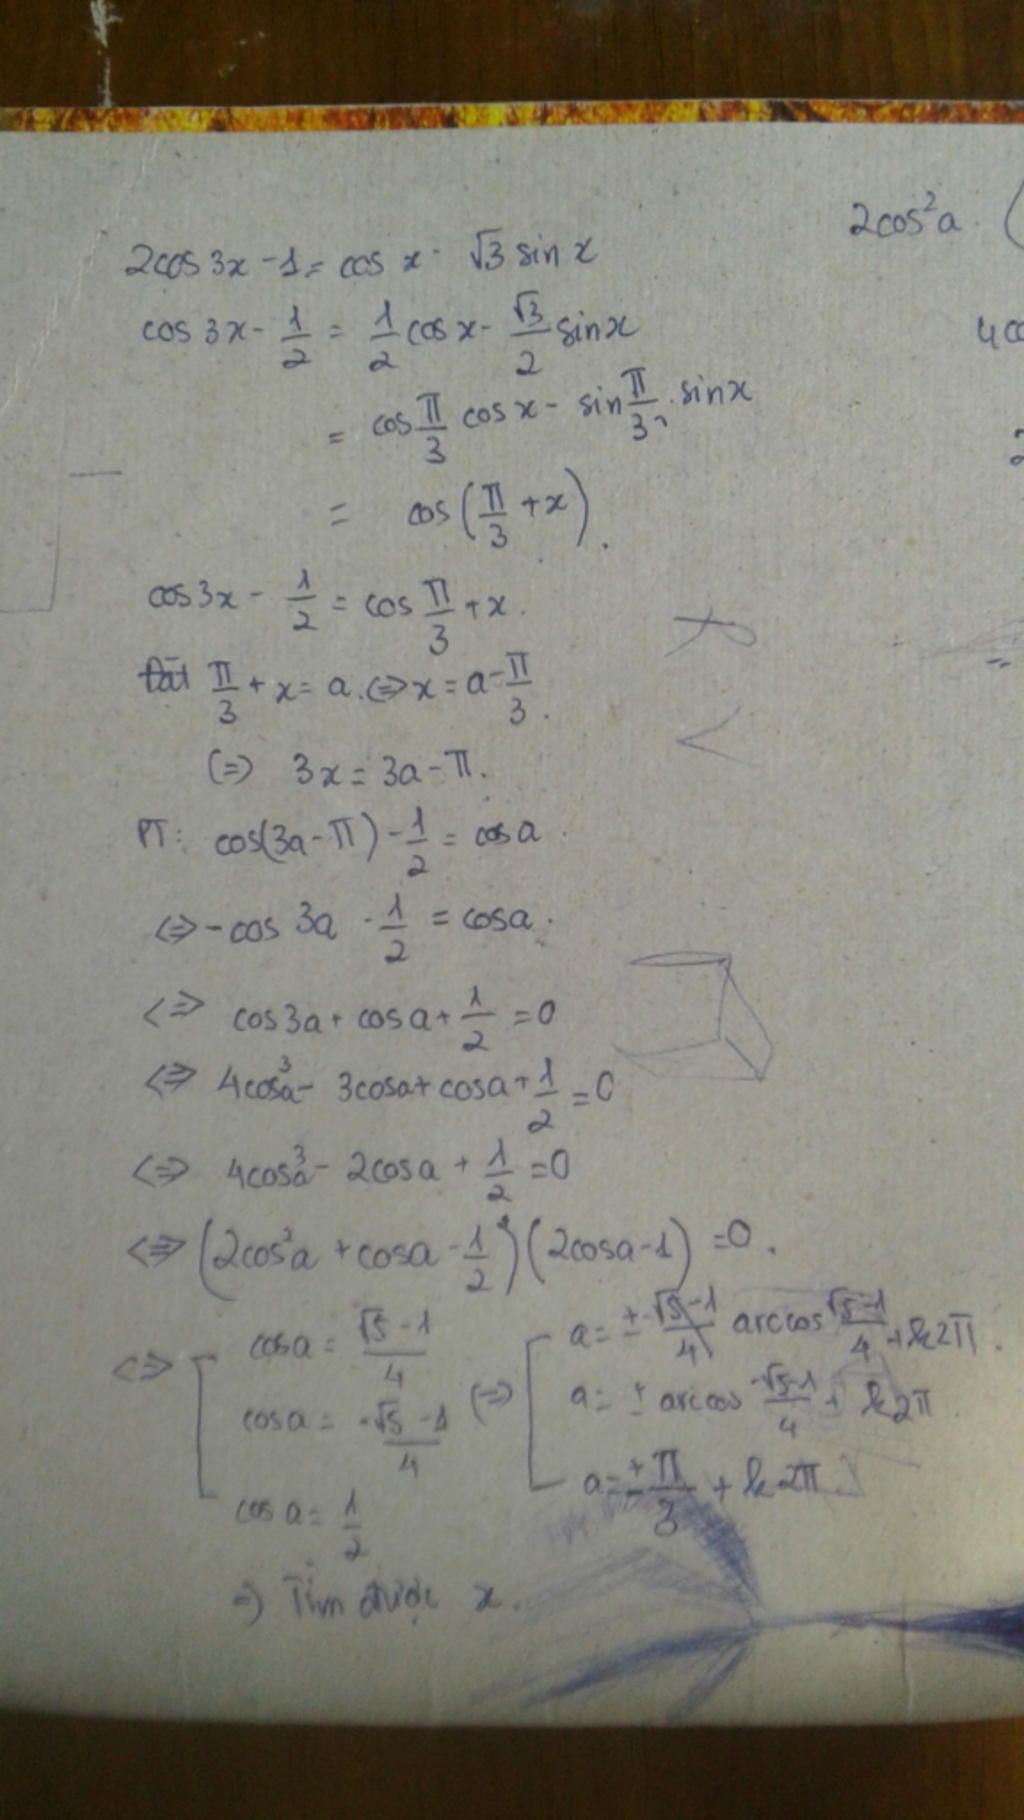 2cos²a (
2cos 3x - 1 = cos x - √3 sin x
cos 3x - 1/2 = 1/2 cos x - √3/2 sin x
= cos π/3 cos x - sin π/3 . sin x
= cos (π/3 + x).
cos 3x - 1/2 = cos π/3 + x.
Đặt π/3 + x = a. <=> x = a - π/3.
(=) 3x = 3a - π.
PT: cos(3a - π) - 1/2 = cos a
<=> - cos 3a - 1/2 = cos a.
<=> cos 3a + cos a + 1/2 = 0
<=> 4cos³a - 3cos a + cos a + 1/2 = 0
<=> 4cos³a - 2cos a + 1/2 = 0
<=> (2cos²a + cos a - 1/2)(2cos a - 1) = 0.
<=> [ cos a = (√5 - 1)/4 (=) [ a = ± arccos (√5 - 1)/4 + k2π.
cos a = (-√5 - 1)/4 a = ± arccos (-√5 - 1)/4 + k2π
cos a = 1/2 a = ± π/3 + k2π.
=) Tìm được x.